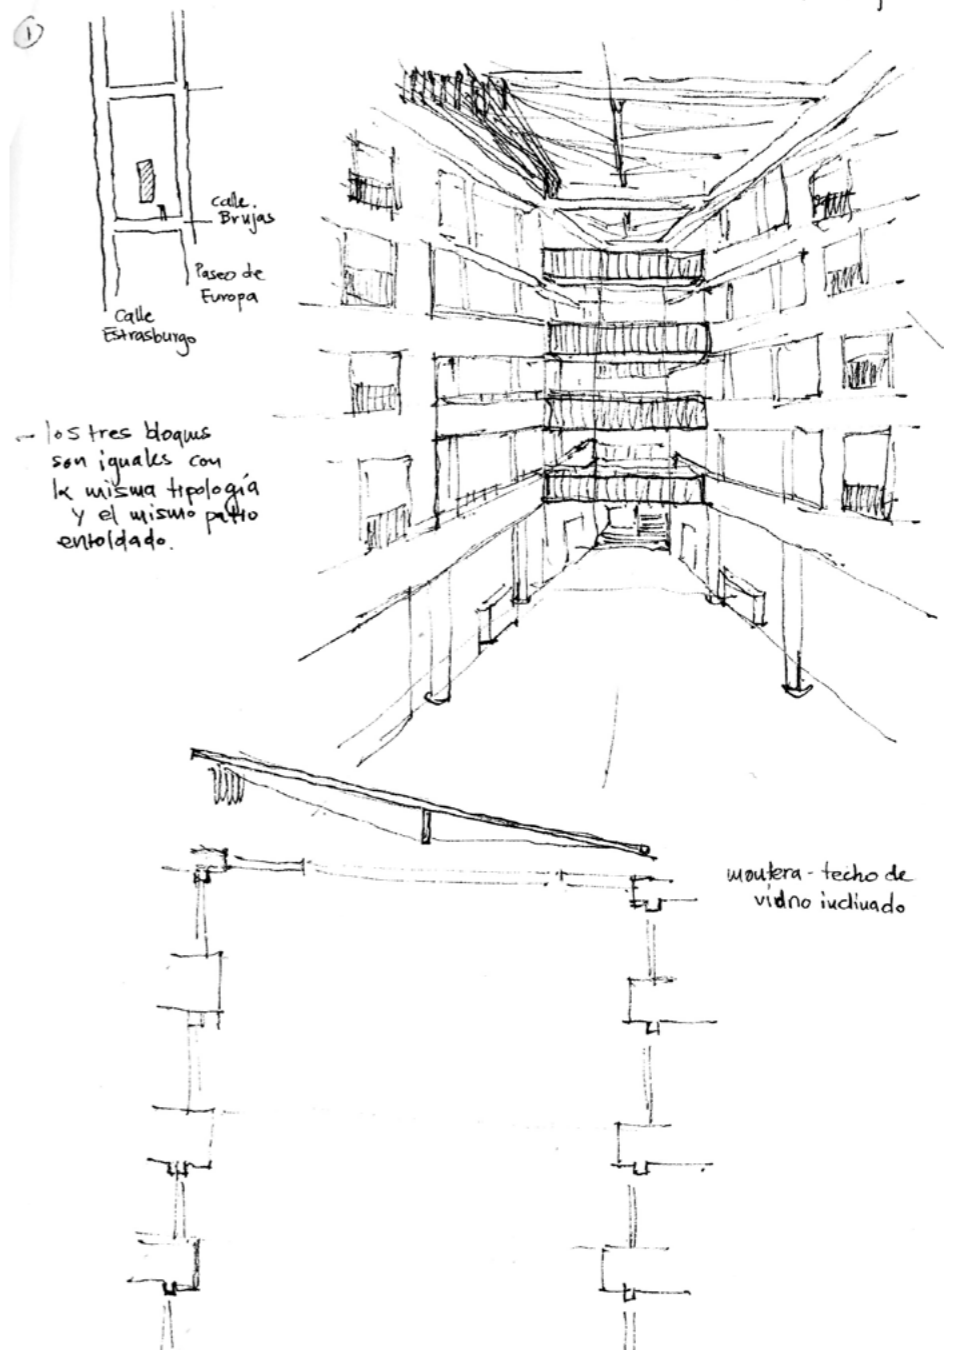 1
calle.
Brujas
Paseo de
Europa
Calle
Estrasburgo
- los tres bloques
son iguales con
la misma tipología
y el mismo patio
entoldado.
montera - techo de
vidrio inclinado